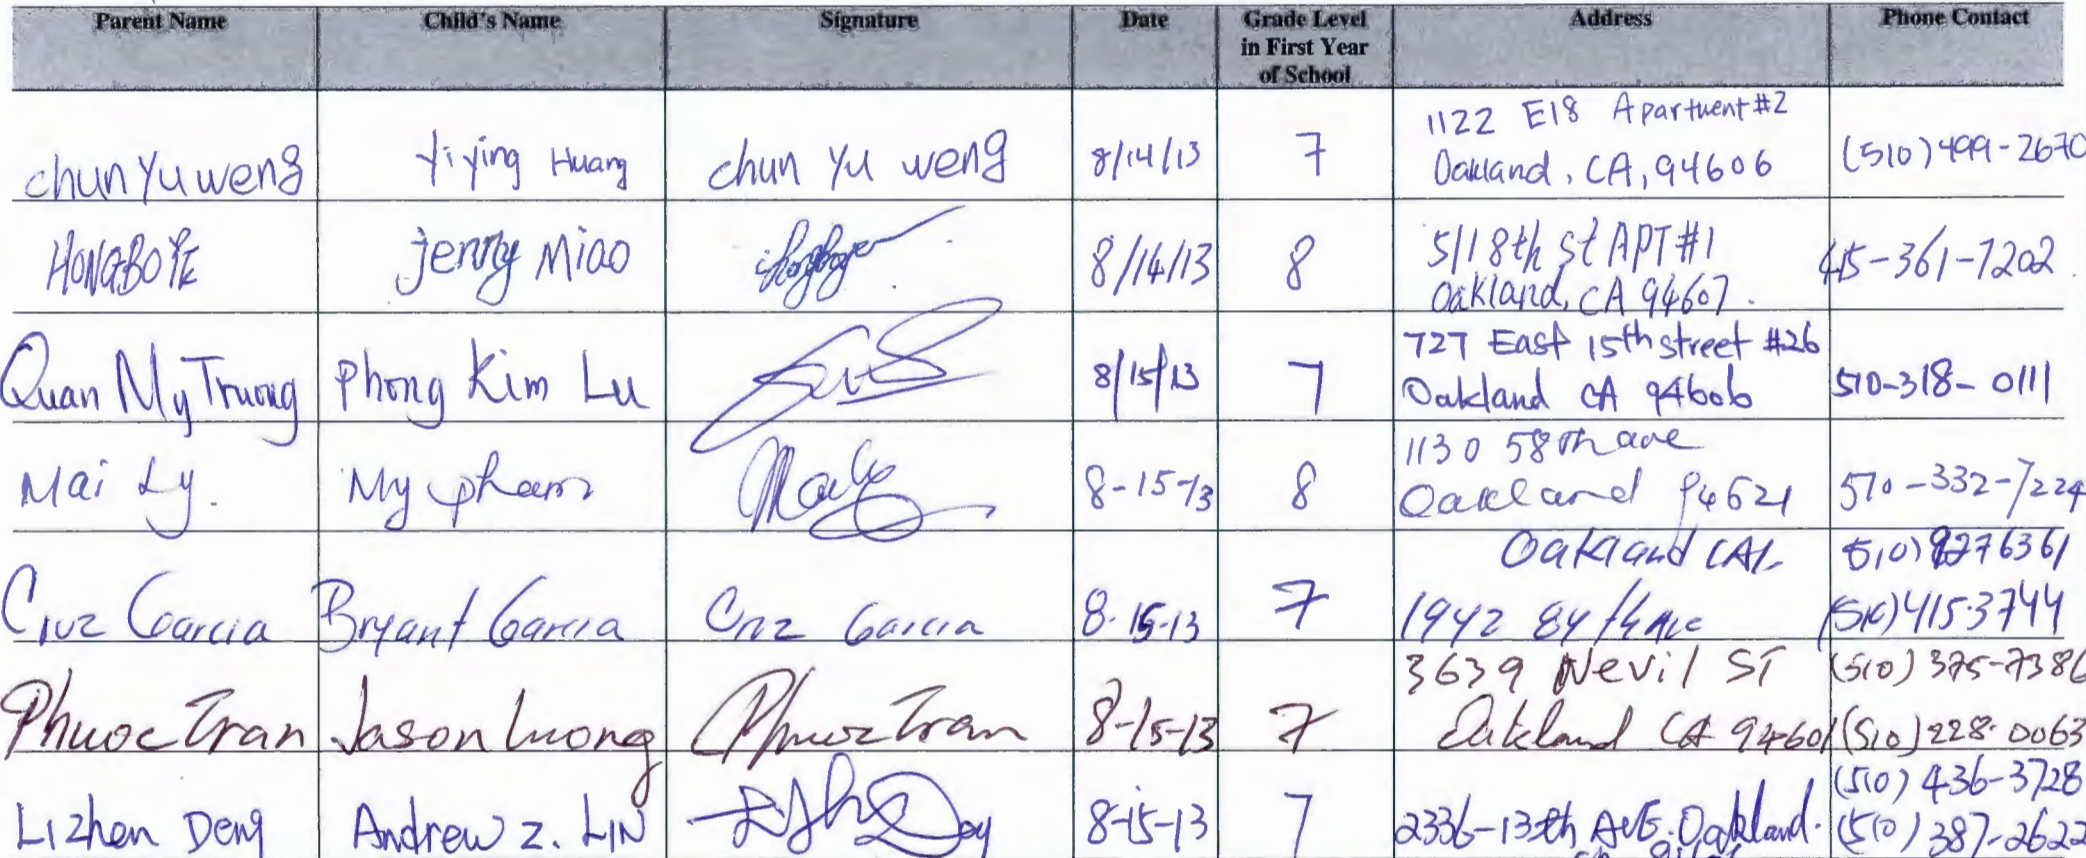 Parent Name Child's Name Signature Date Grade Level in First Year of School Address Phone Contact
chun Yu weng yiying Huang chun Yu weng 8/14/13 7 1122 E18 Apartment #2
Oakland, CA, 94606 (510) 499-2670
HONGBO YE jenny Miao 8/14/13 8 511 8th st APT #1
Oakland, CA 94607. 415-361-7202
Quan My Truong Phong Kim Lu 8/15/13 7 727 East 15th street #26
Oakland CA 94606 510-318-0111
Mai Ly. My pham 8-15-13 8 1130 58th ave
Oakland 94621 510-332-7224
Cruz Garcia Bryant Garcia Cruz Garcia 8-15-13 7 Oakland CAL 510)9276361
1942 84th Ave (510)415-3744
Phuoc Tran Jason Luong Phuoc Tran 8-15-13 7 3639 Nevil ST (510) 375-7386
Oakland CA 94601 (510) 228-0063
Lizhen Deng Andrew Z. LIN 8-15-13 7 2336-13th AVE. Oakland. (510) 436-3728
(510) 387-2622